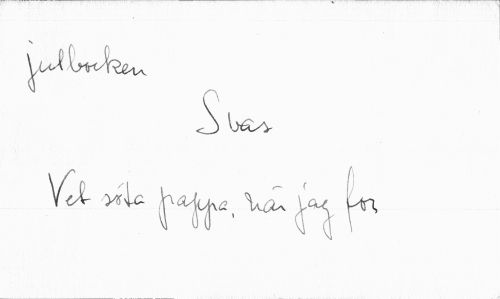 julbocken
Svas
Vet söta pappa, när jag for